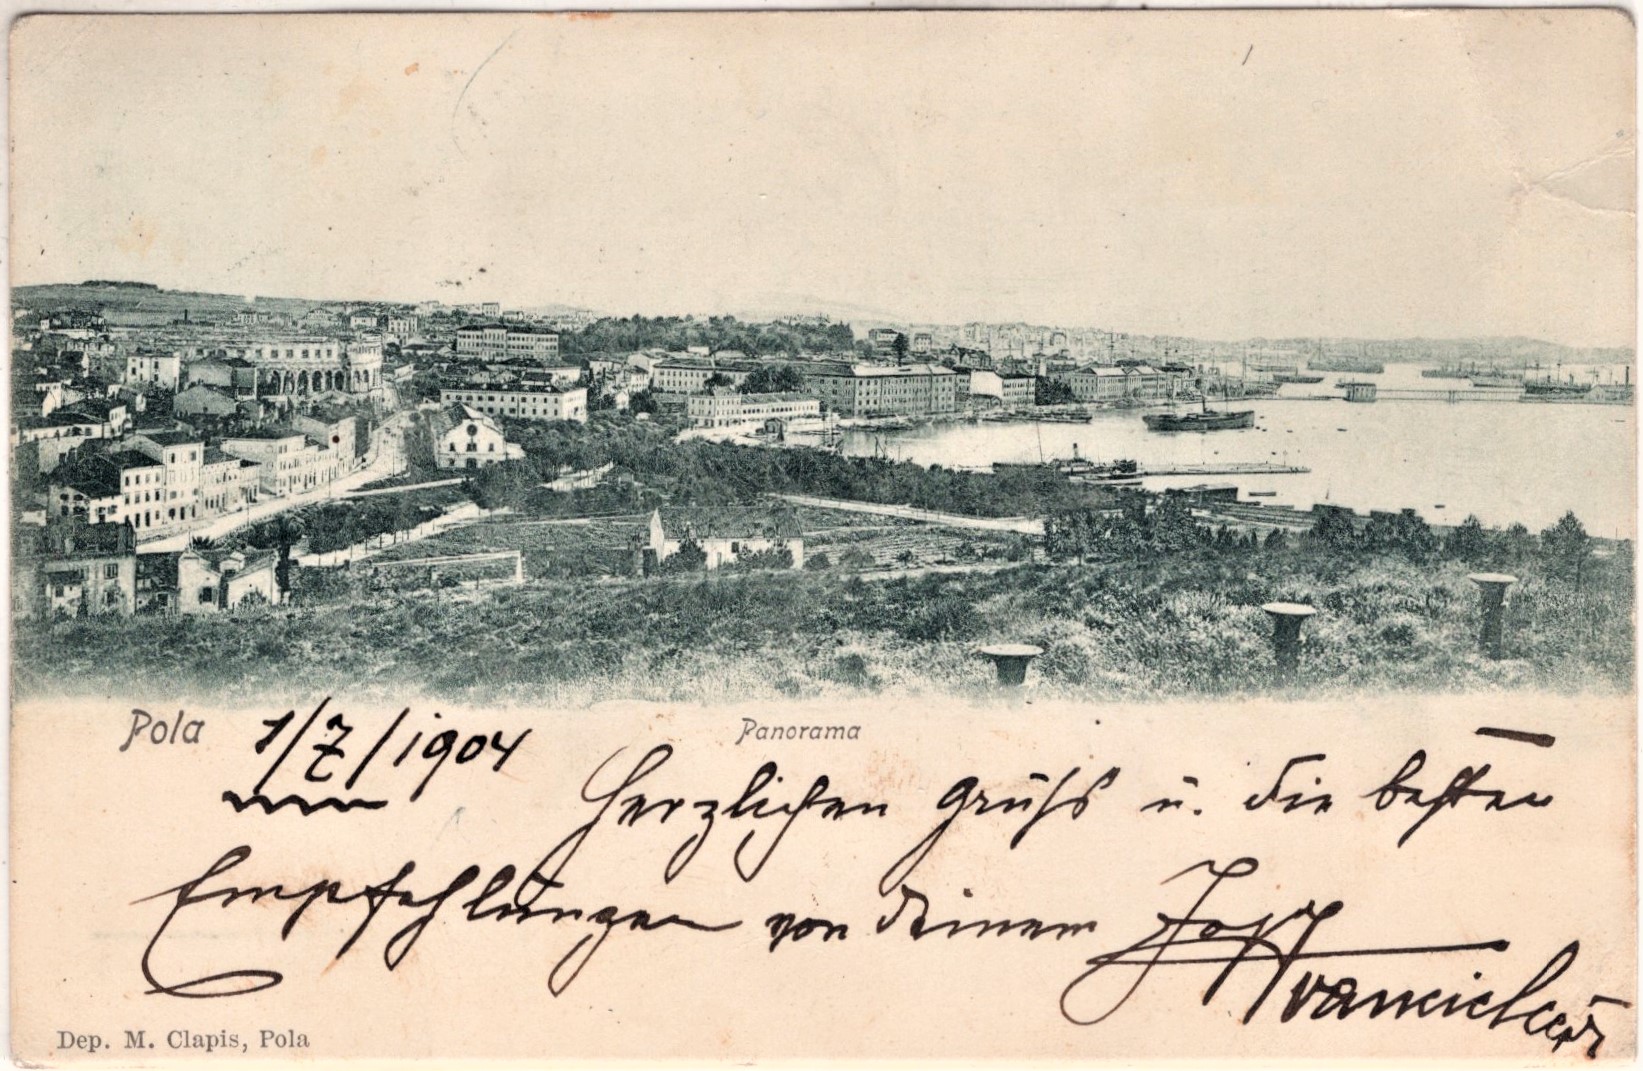 Pola 1/7/1904 Panorama
Herzlichen Gruß u. die besten
Empfehlungen von deinem
Dep. M. Clapis, Pola